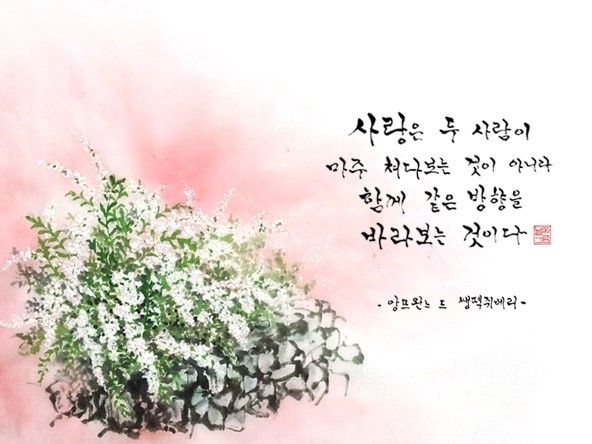 사랑은 두 사람이
마주 쳐다보는 것이 아니라
함께 같은 방향을
바라보는 것이다
- 앙뜨완느 드 쌩떽쥐베리 -